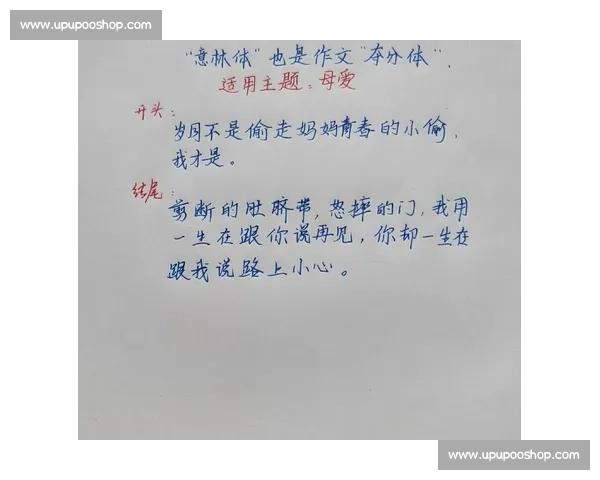 www.upupooshop.com
"意林体"也是作文"夺分体".
适用主题：母爱
开头：
岁月不是偷走妈妈青春的小偷，
我才是。
结尾：
剪断的肚脐带，怒摔的门，我用
一生在跟你说再见，你却一生在
跟我说路上小心。
www.upupooshop.com